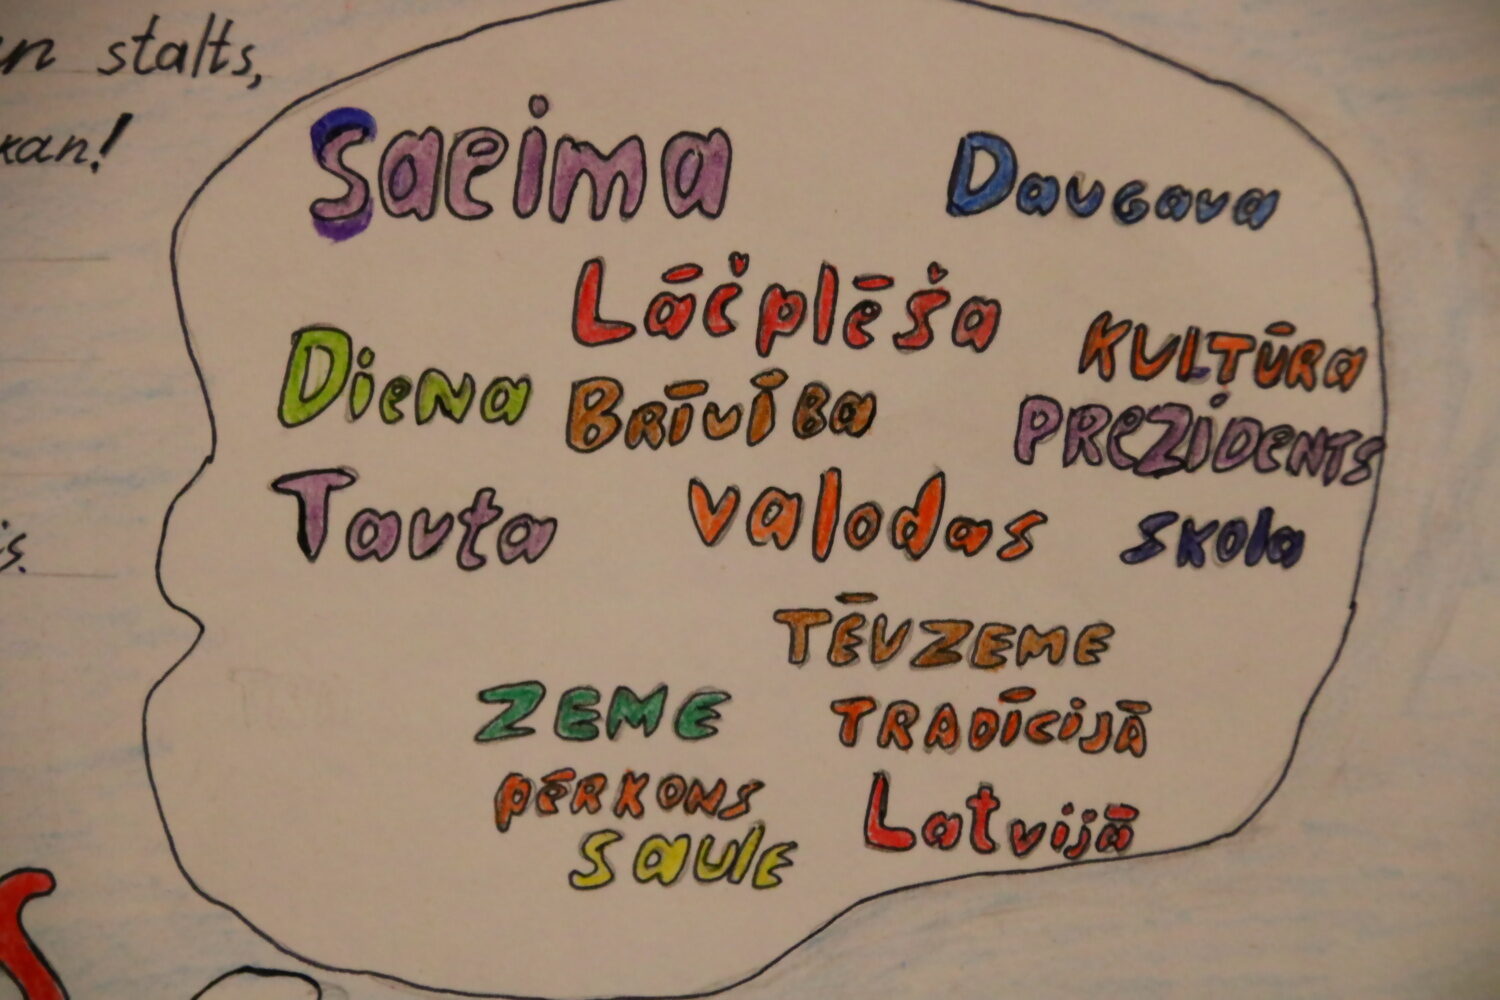 stalts,
Saeima
Daugava
Lāčplēša
Diena
Brīvība
KULTŪRA
PREZIDENTS
Tauta
valodas
skola
TĒVZEME
ZEME
TRADĪCIJĀ
PĒRKONS
Latvijā
saule